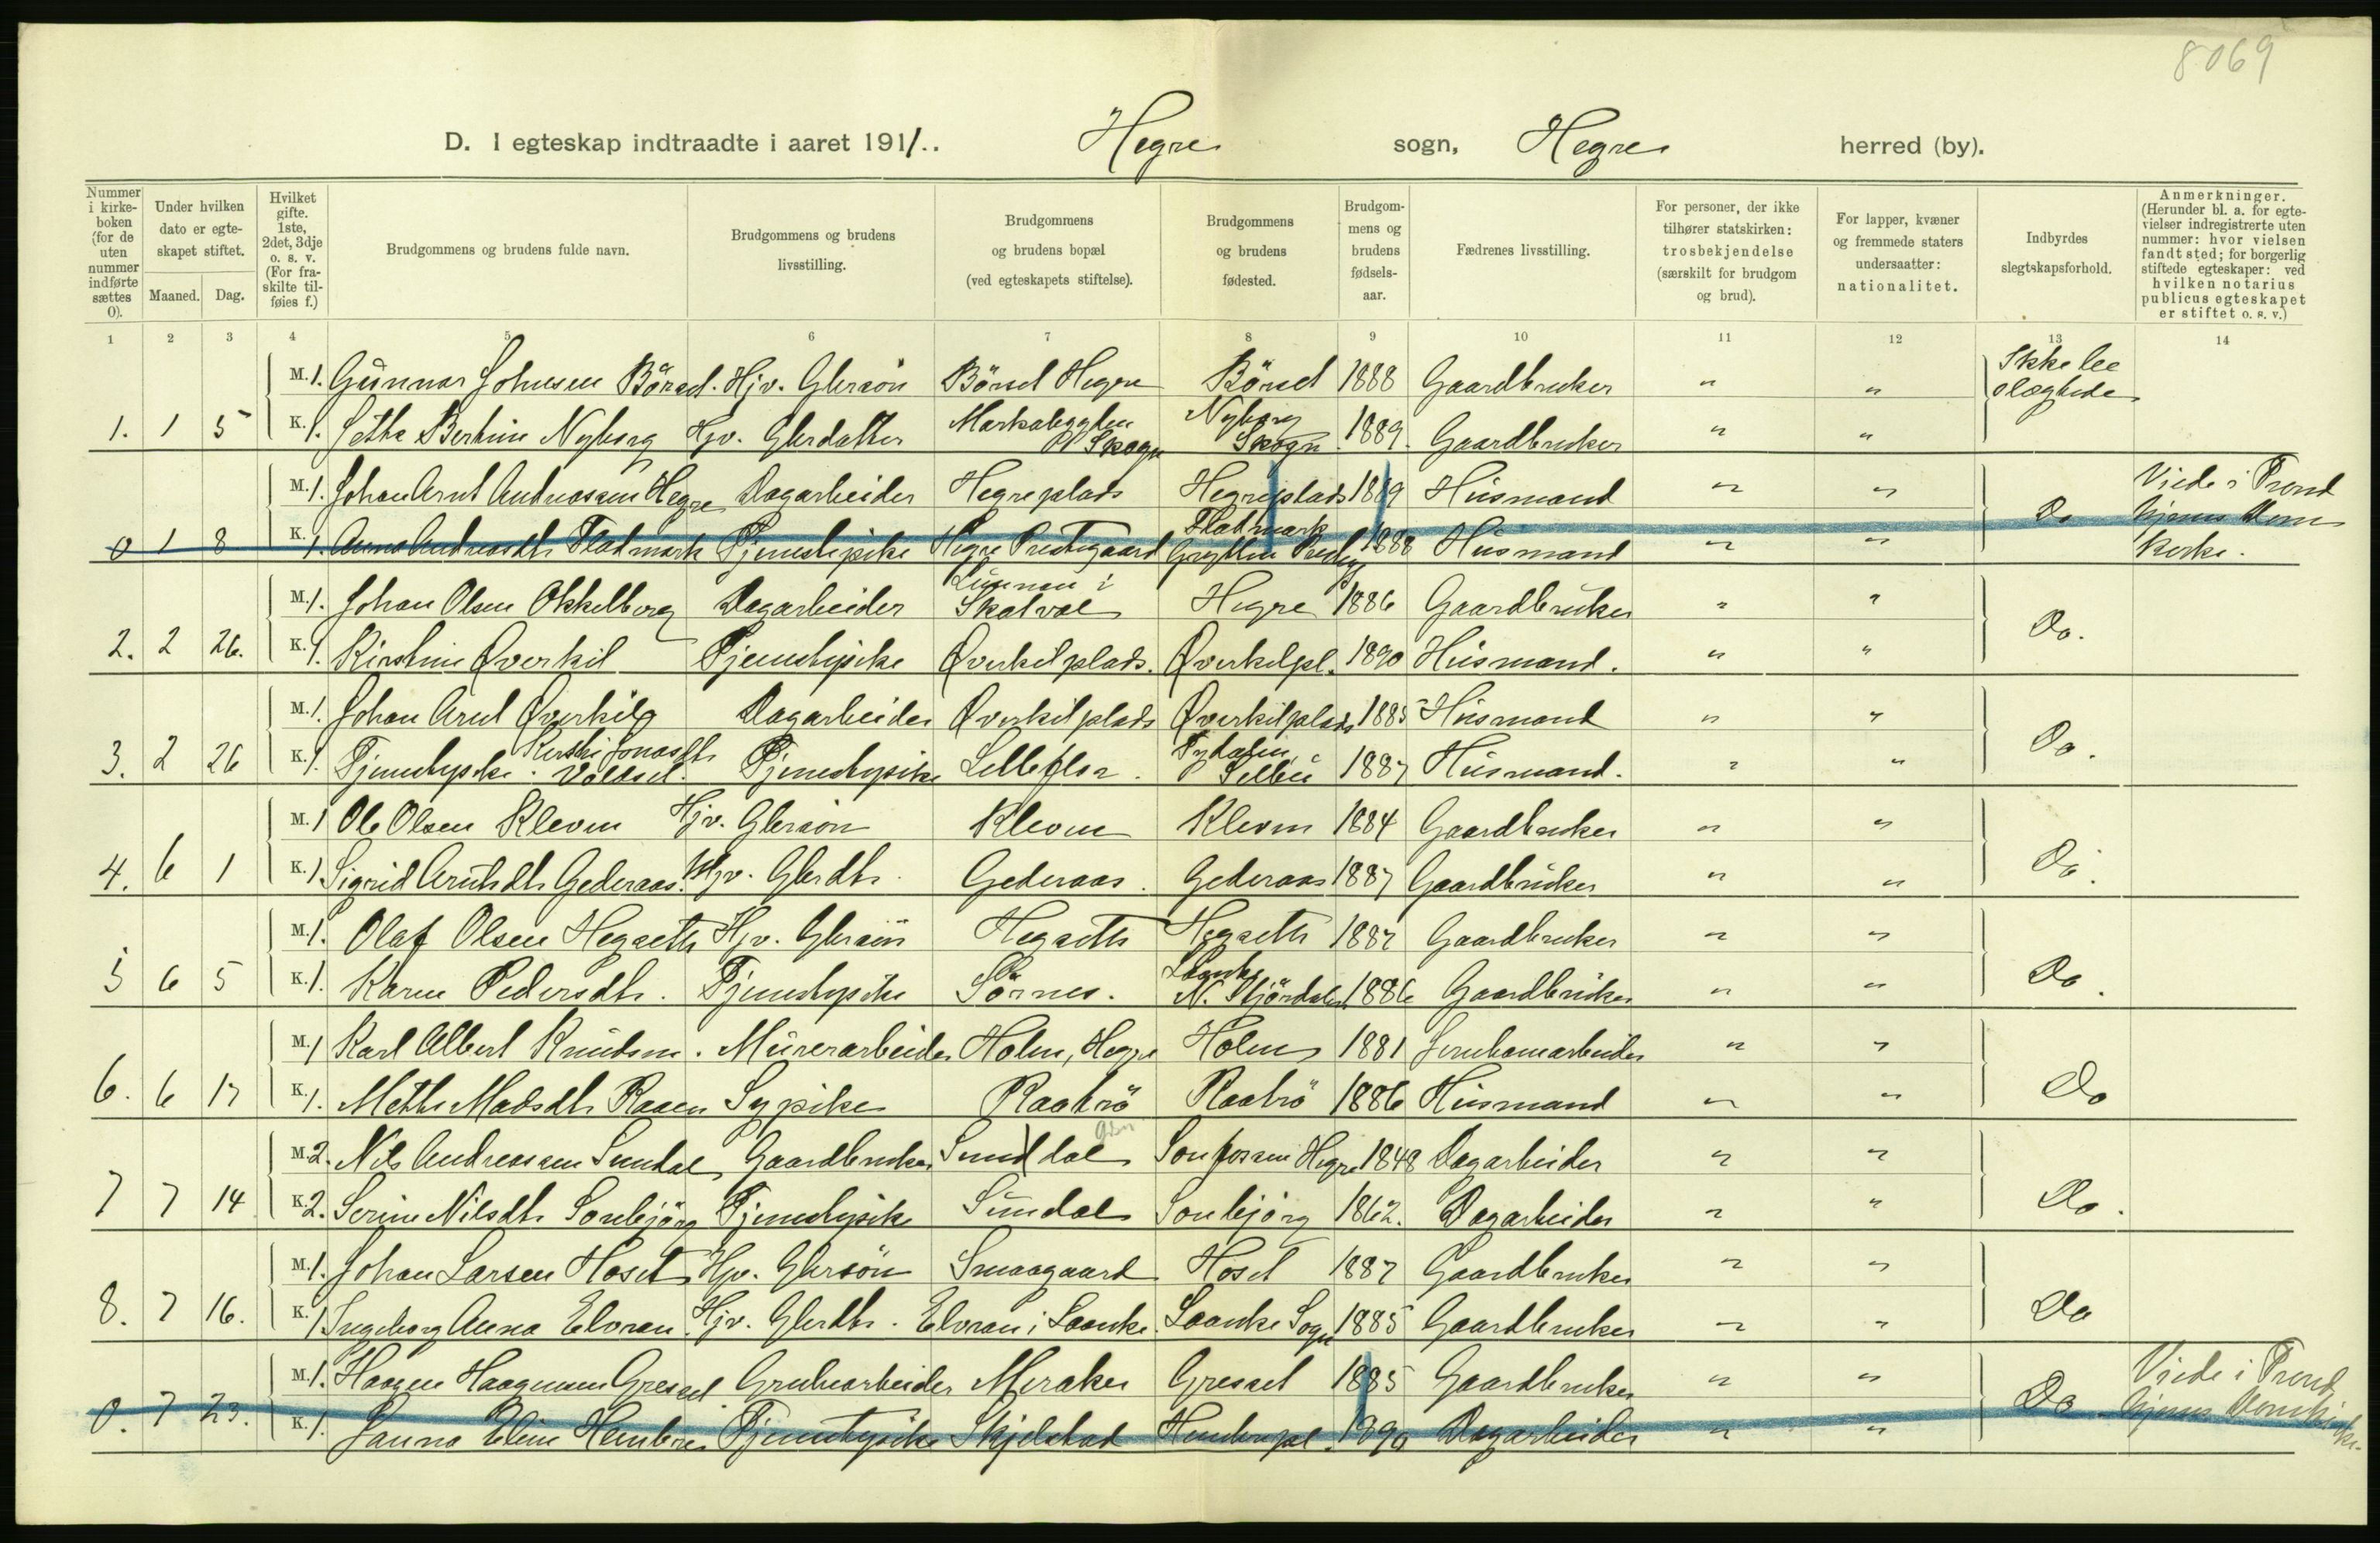 8069
D. I egteskap indtraadte i aaret 1911.. Hegre sogn, Hegre herred (by).
Nummer i kirkeboken (for de uten nummer indførte sættes 0).
Under hvilken dato er egteskapet stiftet.
Maaned. Dag.
Hvilket gifte. 1ste, 2det, 3dje o. s. v. (For fraskilte tilføies f.)
Brudgommens og brudens fulde navn.
Brudgommens og brudens livsstilling.
Brudgommens og brudens bopæl (ved egteskapets stiftelse).
Brudgommens og brudens fødested.
Brudgommens og brudens fødselsaar.
Fædrenes livsstilling.
For personer, der ikke tilhører statskirken: trosbekjendelse (særskilt for brudgom og brud).
For lapper, kvæner og fremmede staters undersaatter: nationalitet.
Indbyrdes slegtskapsforhold.
Anmerkninger. (Herunder bl. a. for egtevielser indregistrerte uten nummer: hvor vielsen fandt sted; for borgerlig stiftede egteskaper: ved hvilken notarius publicus egteskapet er stiftet o. s. v.)
1 2 3 4 5 6 7 8 9 10 11 12 13 14
M. 1. Gunnar Johnsen Börsel. Hjv. Gbrsön Börsel Hegre Börsel 1888 Gaardbruker " " Ikke be slægtede
1. 1 5 K. 1. Jetha Bertine Nyborg Hjv. Gbrdatter Markabygden Skogn Nyborg Skogn 1889. Gaardbruker " "
M. 1. Johan Arnt Andreassen Hegre Dagarbeider Hegreplads Hegreplads 1889 Husmand " " Do Viede i Trond
0 1 8 K. 1. Anna Andreasdtr Flatmark Tjenestepike Hegre Prestegaard Flatmark 1888 Husmand " " hjems Dom
kirke.
M. 1. Johan Olsen Okkelberg Dagarbeider Lunnen i Skatval Hegre 1886 Gaardbruker " "
2. 2 26. K. 1. Kirstine Øverkil Tjenestepike Øverkilplads. Øverkilpl. 1890 Husmand. " " Do.
M. 1. Johan Arnt Øverkil Dagarbeider Øverkilplads Øverkilplads 1885 Husmand " "
3. 2 26 K. 1. Tjenestepike. Kirsti Jonasdtr Volsel. Tjenestepike Lilleflor. Tydalen, Selbu 1887 Husmand. " " Do.
M. 1 Ole Olsen Kleven Hjv. Gbrsön Kleven Kleven 1884 Gaardbruker " "
4. 6 1 K. 1. Sigrid Arntsdtr Gederaas. Hjv. Gbrdtr. Gederaas. Gederaas 1887 Gaardbruker " " Do.
M. 1. Olaf Olsen Hegseth Hjv. Gbrsön Hegseth Hegseth 1887 Gaardbruker " "
5 6 5 K. 1. Karen Pedersdtr. Tjenestepike Sörnes. Laanke N. Stjördalen 1886 Gaardbruker " " Do.
M. 1 Karl Albert Knudsen. Murerarbeider Holm, Hegre Holm 1881 Jernbanearbeider " "
6. 6 17 K. 1. Mette Madsdtr Raaen Sypike Raabrö Raabrö 1886 Husmand " " Do
M. 2. Nils Andreassen Sundal Gaardbruker Sunddal Sonfossen Hegre 1848 Dagarbeider " "
7 7 14 K. 2. Serine Nilsdtr Sonbjörg Tjenestepike Sundal Sonbjörg 1862. Dagarbeider " " Do.
M. 1. Johan Larsen Hoset Hjv. Gbrsön Smaagaard Hoset 1887 Gaardbruker " "
8. 7 16. K. 1 Ingeborg Anna Elvran Hjv. Gbrdtr. Elvran i Laanke. Laanke Sogn 1885 Gaardbruker " " Do
M. 1. Haagen Haagensen Gressel Grubearbeider Meraker Gressel 1885 Gaardbruker " " Viede i Trond
0. 7 23. K. 1. Janna Eline Hembre Tjenestepike Skjelstad Hembrepl. 1890 Dagarbeider " " Do hjems Domkirke.